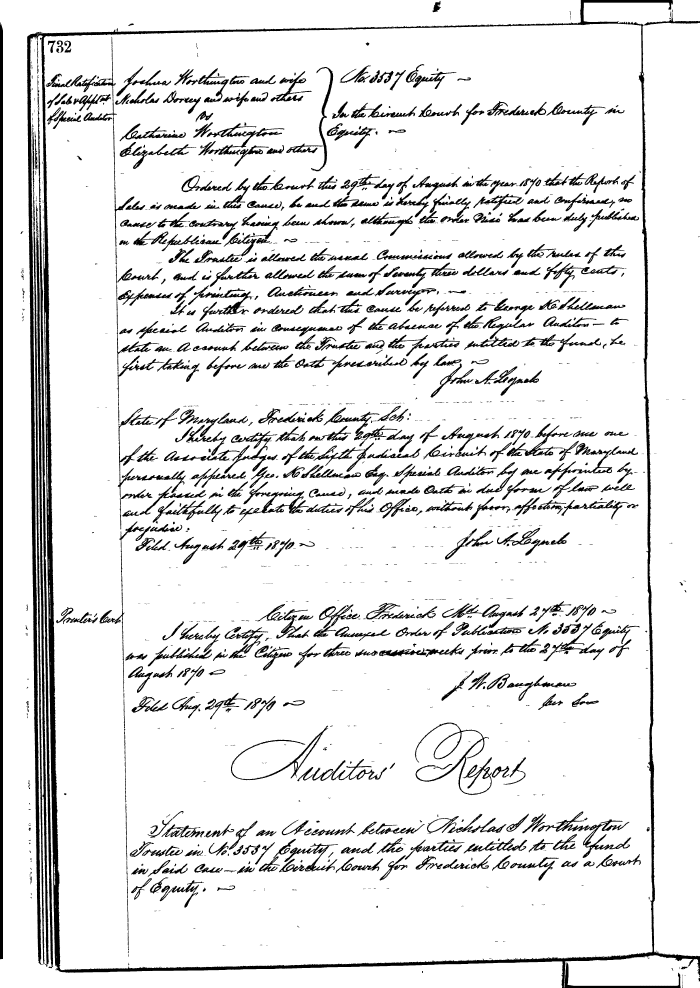 732
Final Ratification
of Sale & Appt. of
of Special Auditor
Joshua Worthington and wife
Nicholas Dorsey and wife and others
vs
Catharine Worthington
Elizabeth Worthington and others
No. 3537 Equity
In the Circuit Court for Frederick County in
Equity.
Ordered by the Court this 29th day of August in the year 1870 that the Report of
Sales is made in this cause, be and the same is hereby finally ratified and confirmed, no
cause to the contrary having been shown, although the order Nisi has been duly published
in the Republican Citizen
The Trustee is allowed the usual Commissions allowed by the rules of this
Court, and is further allowed the sum of Seventy three dollars and fifty cents,
Expenses of printing, Auctioneer and Surveyor.
It is further ordered that this cause be referred to George K Shellman
as special Auditor in consequence of the absence of the Regular Auditor – to
state an Account between the Trustee and the parties entitled to the fund, he
first taking before me the Oath prescribed by law
John A. Lynch
State of Maryland, Frederick County, Sch:
I hereby certify that on this 29th day of August 1870 before me one
of the Associate Judges of the Sixth judicial Circuit of the State of Maryland
personally appeared Geo. K Shellman Esq. Special Auditor by me appointed by
order passed in the foregoing Cause, and made Oath in due form of law well
and faithfully to execute the duties of his Office, without favor, affection, partiality or
prejudice.
Filed August 29th 1870
John A. Lynch
Printer's Cert
Citizen Office Frederick Md. August 27th 1870
I hereby Certify, That the Annexed Order of Publication No. 3537 Equity
was published in the Citizen for three successive weeks prior to the 27th day of
August 1870
J W. Baughman
Filed Aug. 29th 1870
per Son
Auditors' Report
Statement of an Account between Nicholas I Worthington
Trustee in No. 3537 Equity, and the parties entitled to the fund
in Said Case – in the Circuit Court for Frederick County as a Court
of Equity.